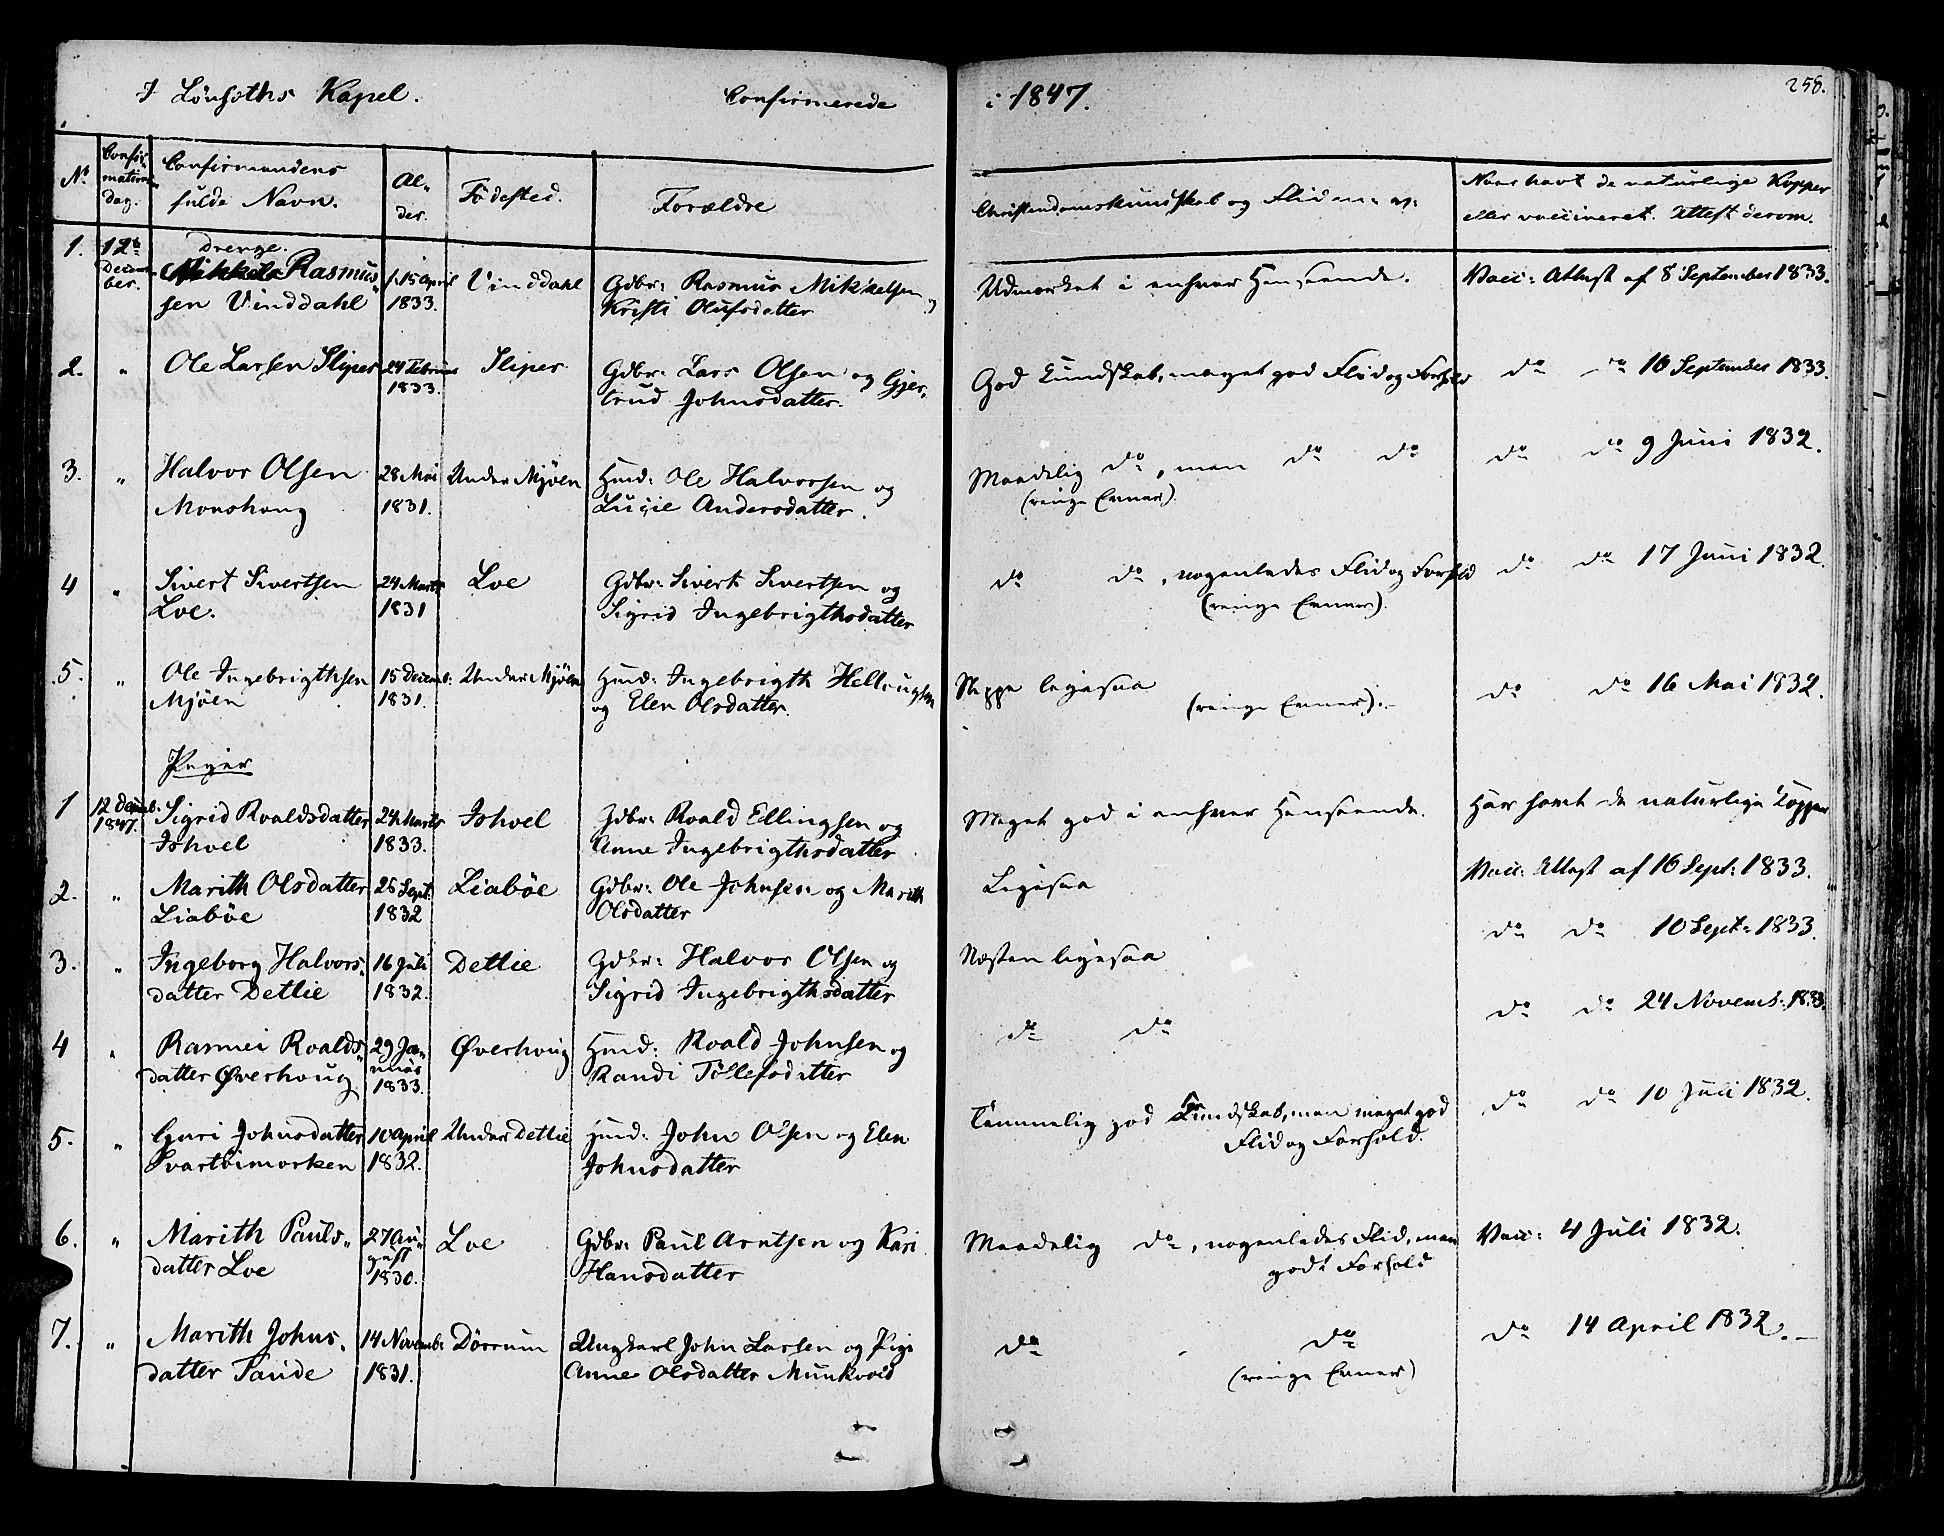 I Lønsæths Kapel. Confirmerede i 1847. 258.
No
Confir-
mations
Dag.
Confirmandens
fulde Navn.
Al-
der.
Fødested.
Forældre
Christendomskundskab og Flid m: v:
Naar havt de naturlige Kopper
eller vaccineret. Attest derom.
Drenge.
1. 12te
Decem-
ber.
Rasmus-
sen Vinddahl
15 April
1833.
Vinddahl
Gdbr: Rasmus Mikkelsen og
Kristi Olufsdatter
Udmærket i enhver Henseende.
Vacc: Attest af 8 September 1833.
2. " Ole Larsen Sliper
24 Februar
1833.
Sliper
Gdbr: Lars Olsen og Gjer-
trud Johnsdatter.
God Kundskab, meget god Flid og Forhold
do do 16 September 1833.
3. " Halvor Olsen
Monshoug
28 Mai
1831.
Under Mjöen
Hmd: Ole Halvorsen og
Lucie Andersdatter.
Maadelig do, men do do
(ringe Evner).
do do 9 Juni 1832.
4 " Sivert Sivertsen
Loe.
24 Marts
1831
Loe
Gdbr: Sivert Sivertsen og
Sigrid Ingebrigthsdatter
do do, nogenledes Flid og Forhold
(ringe Evner).
do do 17 Juni 1832.
5. " Ole Ingebrigthsen
Mjöen
15 Decemb:
1831.
Under Mjöen
Hmd: Ingebrigth Hellaugsen
og Elen Olsdatter.
Neppe ligesaa
(ringe Evner).-
do do 16 Mai 1832.
Piger
1 12 Decemb.
1847.
Sigrid Roaldsdatter
Ishoel
24 Marts
1833.
Ishoel
Gdbr: Roald Ellingsen og
Anne Ingebrigthsdatter
Meget god i enhver Henseende.
Har havt de naturlige Kopper
2. " Marith Olsdatter
Liabøe
26 Sept.
1832
Liabøe
Gdbr: Ole Johnsen og Marith
Olsdatter
Ligesaa
Vacc: Attest af 16 Sept: 1833.
3. " Ingeborg Halvors-
datter Detlie
16 Juli
1832.
Detlie
Gdbr: Halvor Olsen og
Sigrid Ingebrigthsdatter
Næsten ligesaa
do do 10 Sept: 1833.
4 " Rasmei Roalds-
datter Øverhoug
29 Ja-
nuar
1833.
Øverhoug
Hmd: Roald Johnsen og
Randi Tollefsdatter
do do
do do 24 Novemb: 1833.
5. " Guri Johnsdatter
Svartbimorken
10 April
1832.
Under Detlie
Hmd: John Olsen og Elen
Johnsdatter
Temmelig god Kundskab, men meget god
Flid og Forhold.
do do 10 Juli 1832.
6. " Marith Pauls-
datter Loe
27 Au-
gust
1830.
Loe
Gdbr: Paul Arntsen og Kari
Hansdatter
Maadelig do, nogenledes Flid, men
godt Forhold
Vacc: 4 Juli 1832.
7. " Marith Johns-
datter Sande
14 Novemb:
1831.
Dørrum
Ungkarl John Larsen og Pige
Anne Olsdatter Munkvold
do do
(ringe Evner)
do 14 April 1832.-